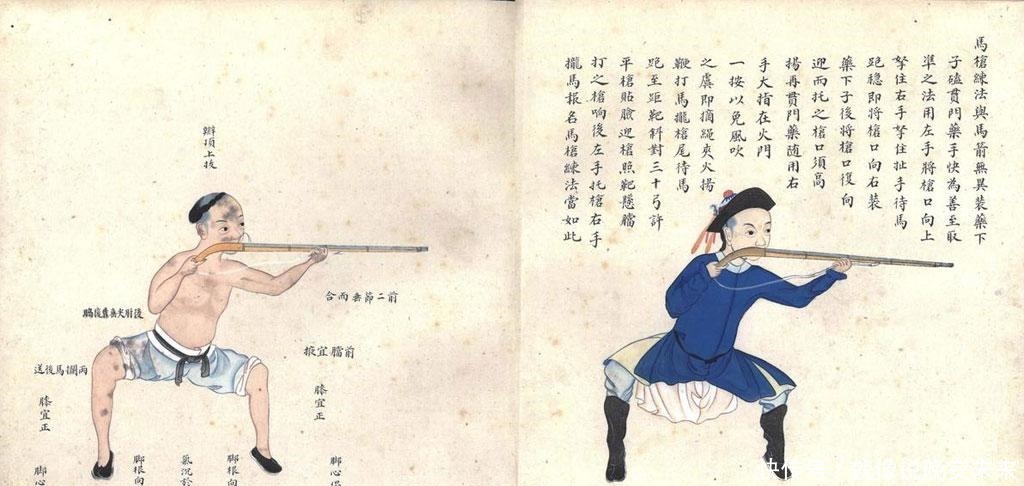 馬槍練法與馬箭無異裝藥下
子磕貫門藥手快為善至取
準之法用左手將槍口向上
拏住右手拏住扯手待馬
跑穩即將槍口向右裝
藥下子後將槍口復向
迎而托之槍口須高
揚再貫門藥随用右
手大指在火門
一按以免風吹
之虞即摘繩夾火揚
鞭打馬攏槍尾待馬
跑至距靶斜對三十弓許
平槍貼臉迎槍照靶懸
打之槍响後左手托槍右手
攏馬报名馬槍練法當如此
辮頂上拔
前二節垂而合
後肘尖垂靠後
前宜掖
兩馬後送
膝宜正
膝宜正
脚心
脚根向
氣沉於
脚根向
脚心